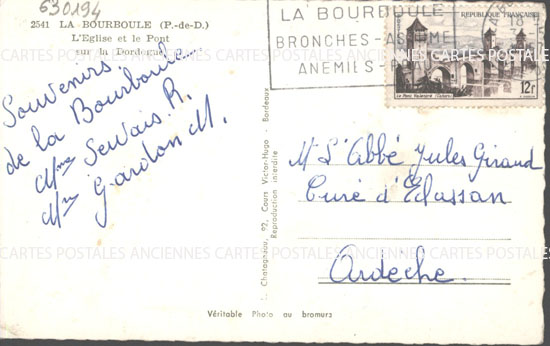 630194
2541 LA BOURBOULE (P.-de-D.)
L'Eglise et le Pont
sur la Dordogne
Souvenirs
de la Bourboule
Mme Servais. R.
Mme Gardon M.
LA BOURBOULE
BRONCHES - ASTHME
ANEMIES -
REPUBLIQUE FRANÇAISE
Le Pont Valentré (Cahors)
12F
L. Chatagneau, 92, Cours Victor-Hugo - Bordeaux
Reproduction interdite
Mr L'Abbé Jules Giraud
Curé d'Eclassan
Ardèche.
CARTES POSTALES ANCIENNES CARTES POSTALES ANCIENNES CARTES POSTALES
Véritable Photo au bromure